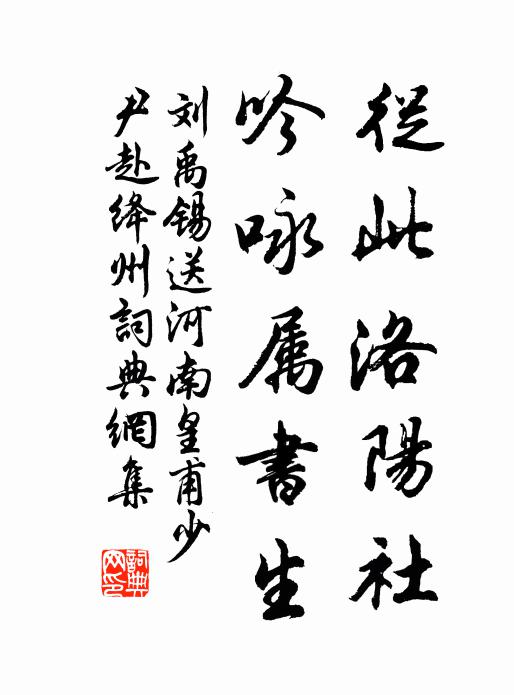 從此洛陽社
吟咏属書生
刘禹锡送河南皇甫少
尹赴绛州詞典網集
詞典
网印